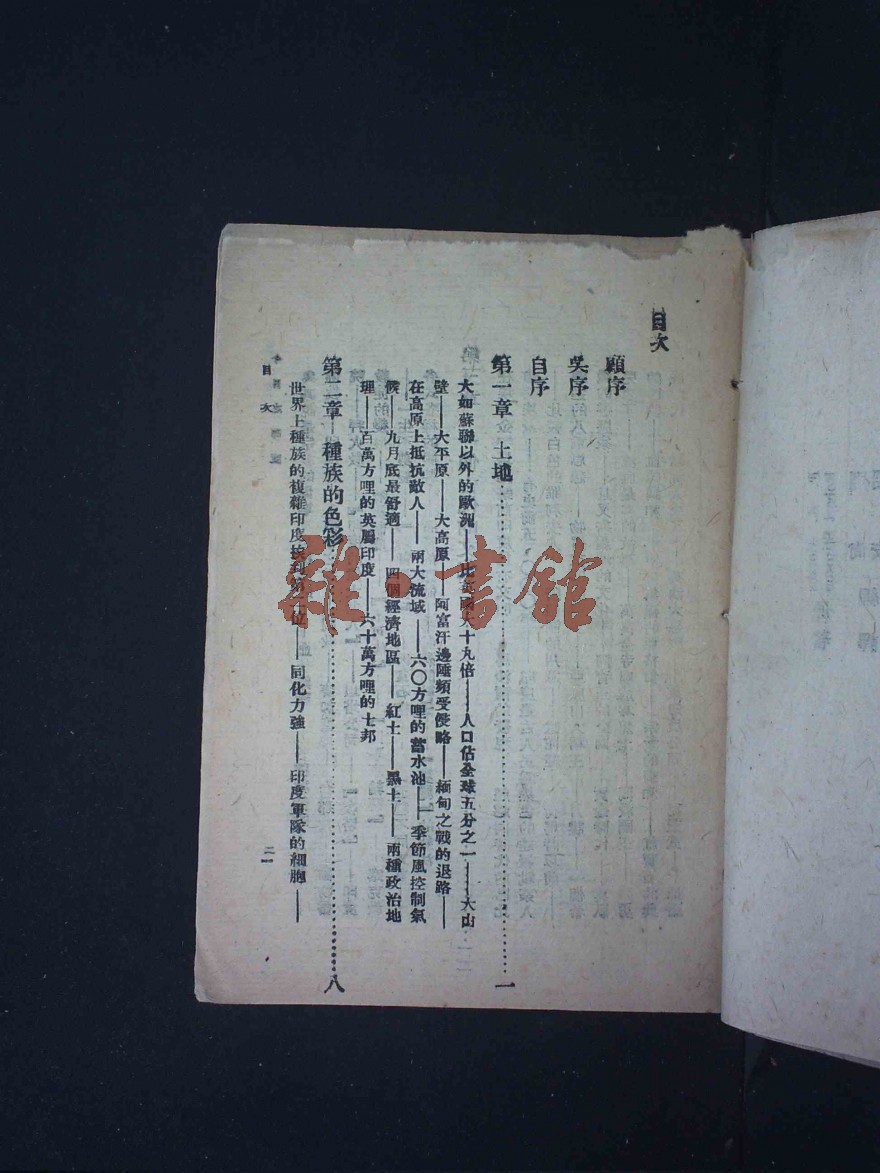 目次
顧序
吳序
自序
第一章 土地……一
大如蘇聯以外的歐洲——比英國大十九倍——人口佔全球五分之一——大山
壁——大平原——大高原——阿富汗邊陲頻受侵略——緬甸之戰的退路——
在高原上抵抗敵人——兩大流域——六〇方哩的蓄水池——季節風控制氣
候——九月底最舒適——四個經濟地區——紅土——黑土——兩種政治地
理——百萬方哩的英屬印度——六十萬方哩的土邦
第二章 種族的色彩……八
世界上種族的複雜印度——同化力強——印度軍隊的細胞——
目次
雜·書館